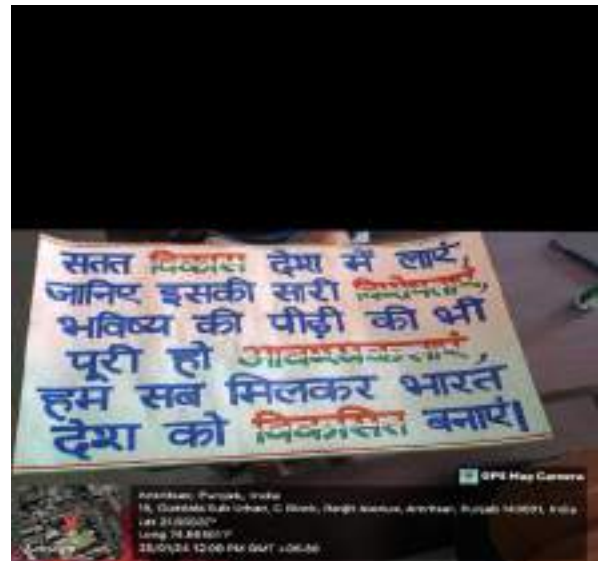 सतत विकास देश में लाएं,
जानिए इसकी सारी विशेषताएं,
भविष्य की पीढ़ी की भी
पूरी हो आवश्यकताएं,
हम सब मिलकर भारत
देश को विकसित बनाएं।
GPS Map Camera
Amritsar, Punjab, India
Sub Urban, C Block, Ranjit Avenue, Amritsar, Punjab India
Lat
Long
12:00 PM GMT +05:30